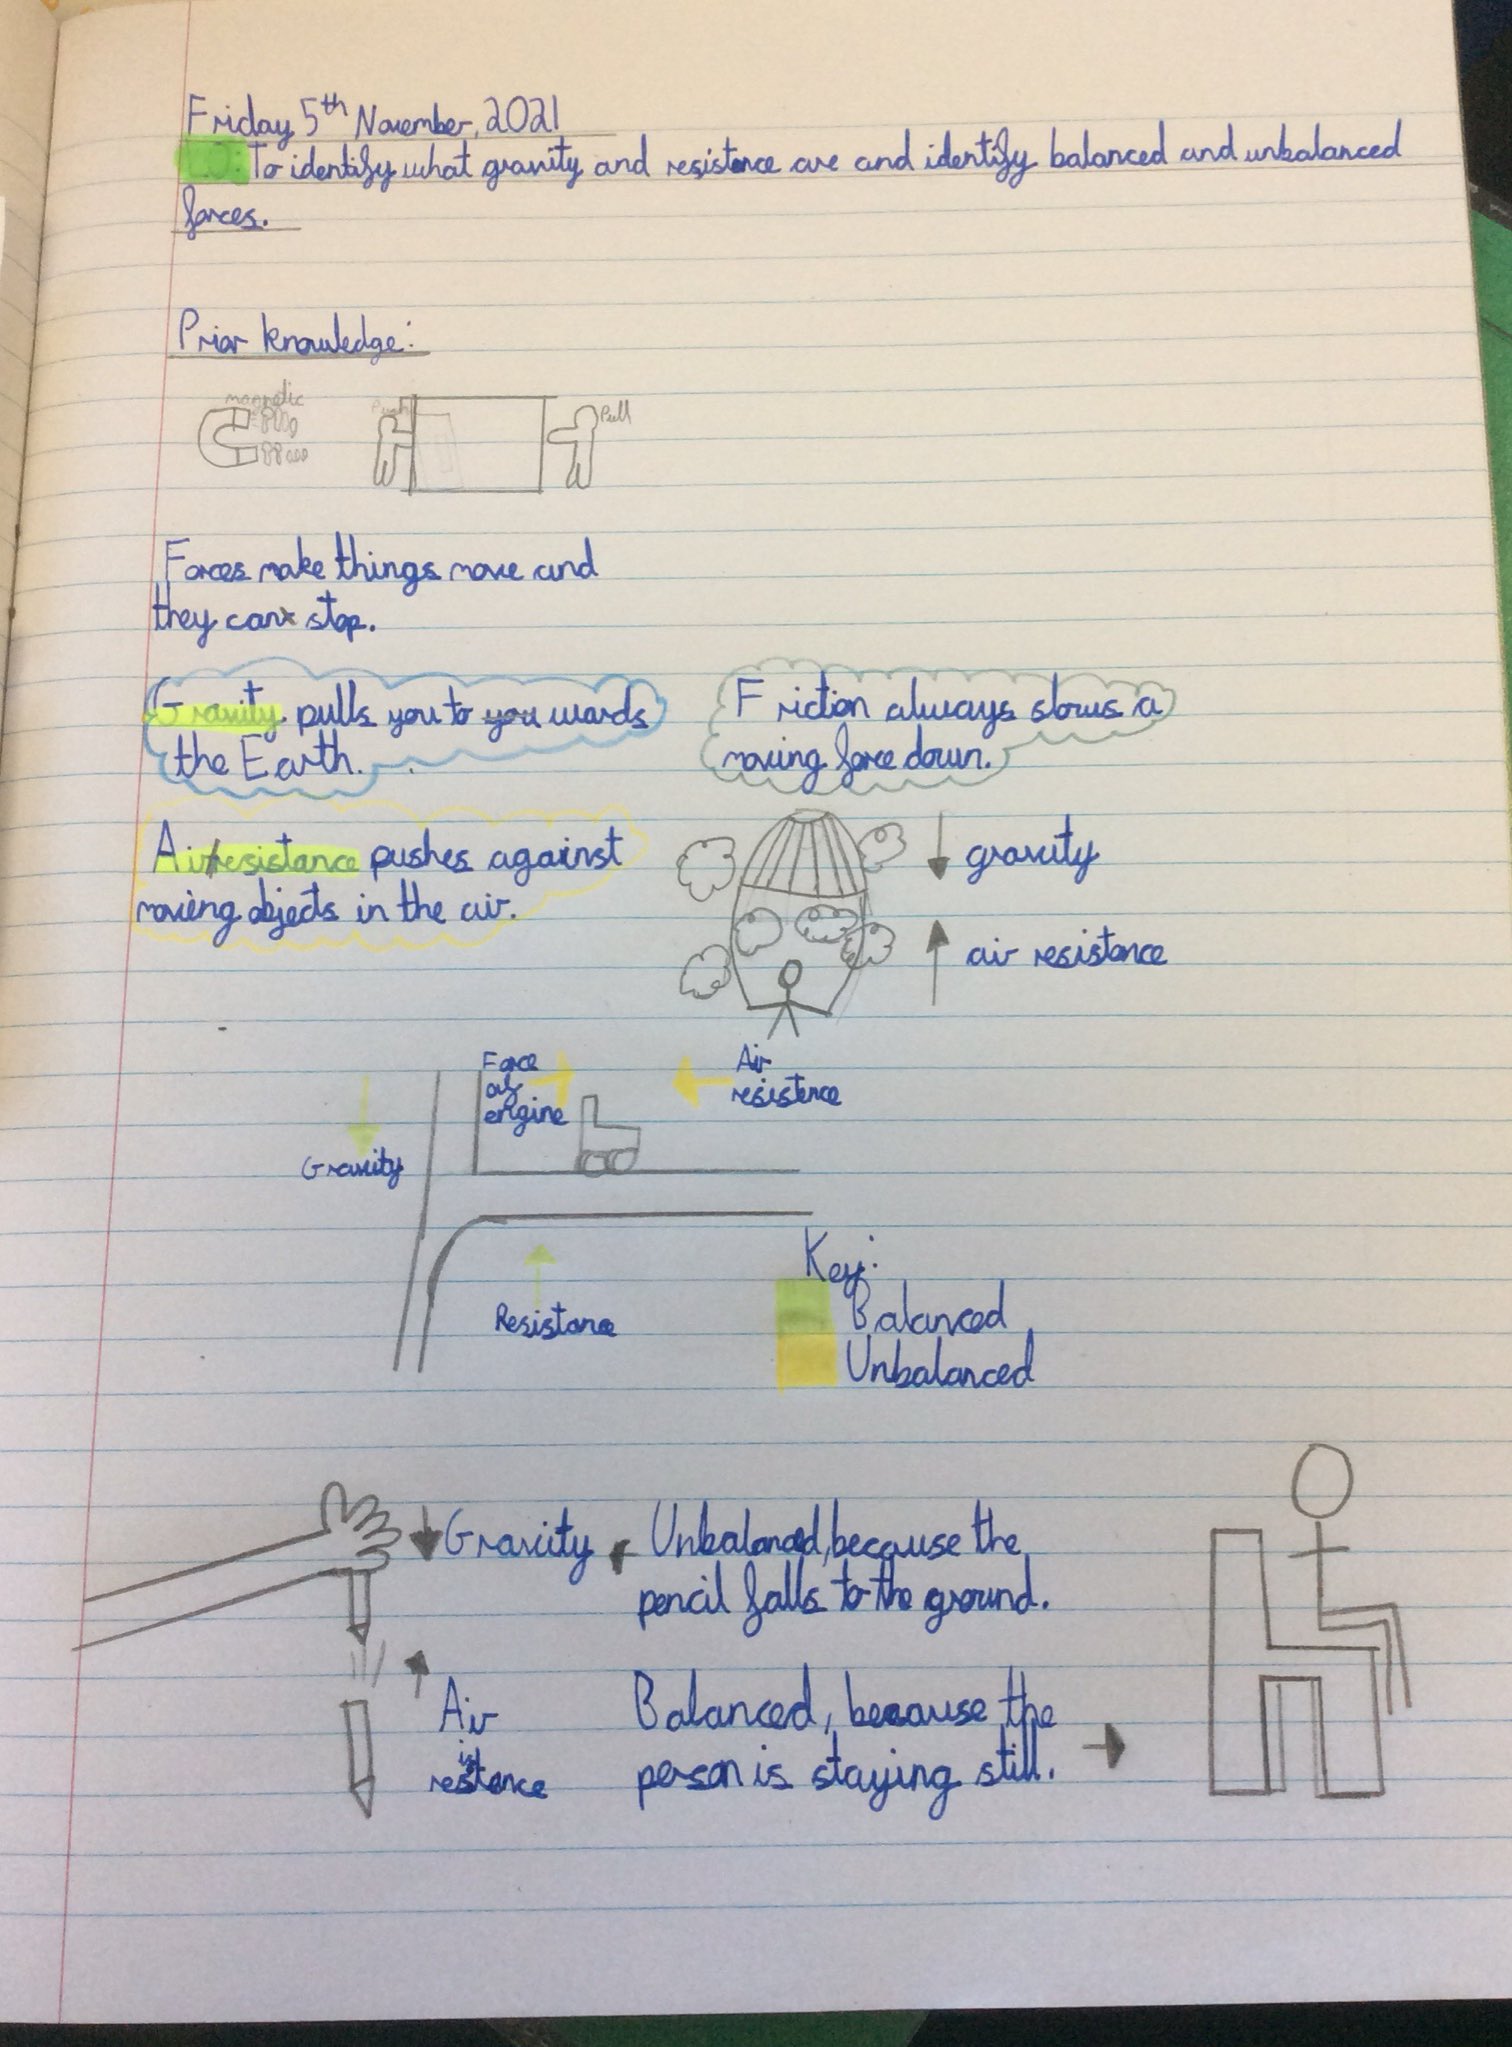 Friday 5th November, 2021
LO: To identify what gravity and resistance are and identify balanced and unbalanced
forces.
Prior knowledge:
magnetic
Push
Pull
Forces make things move and
they can stop.
Gravity pulls you to you wards
the Earth.
Friction always slows a
moving force down.
Air resistance pushes against
moving objects in the air.
gravity
air resistance
Force
of
engine
Air
resistence
Gravity
Resistance
Key:
Balanced
Unbalanced
Gravity
Unbalanced, because the
pencil falls to the ground.
Air
resistence
Balanced, because the
person is staying still.